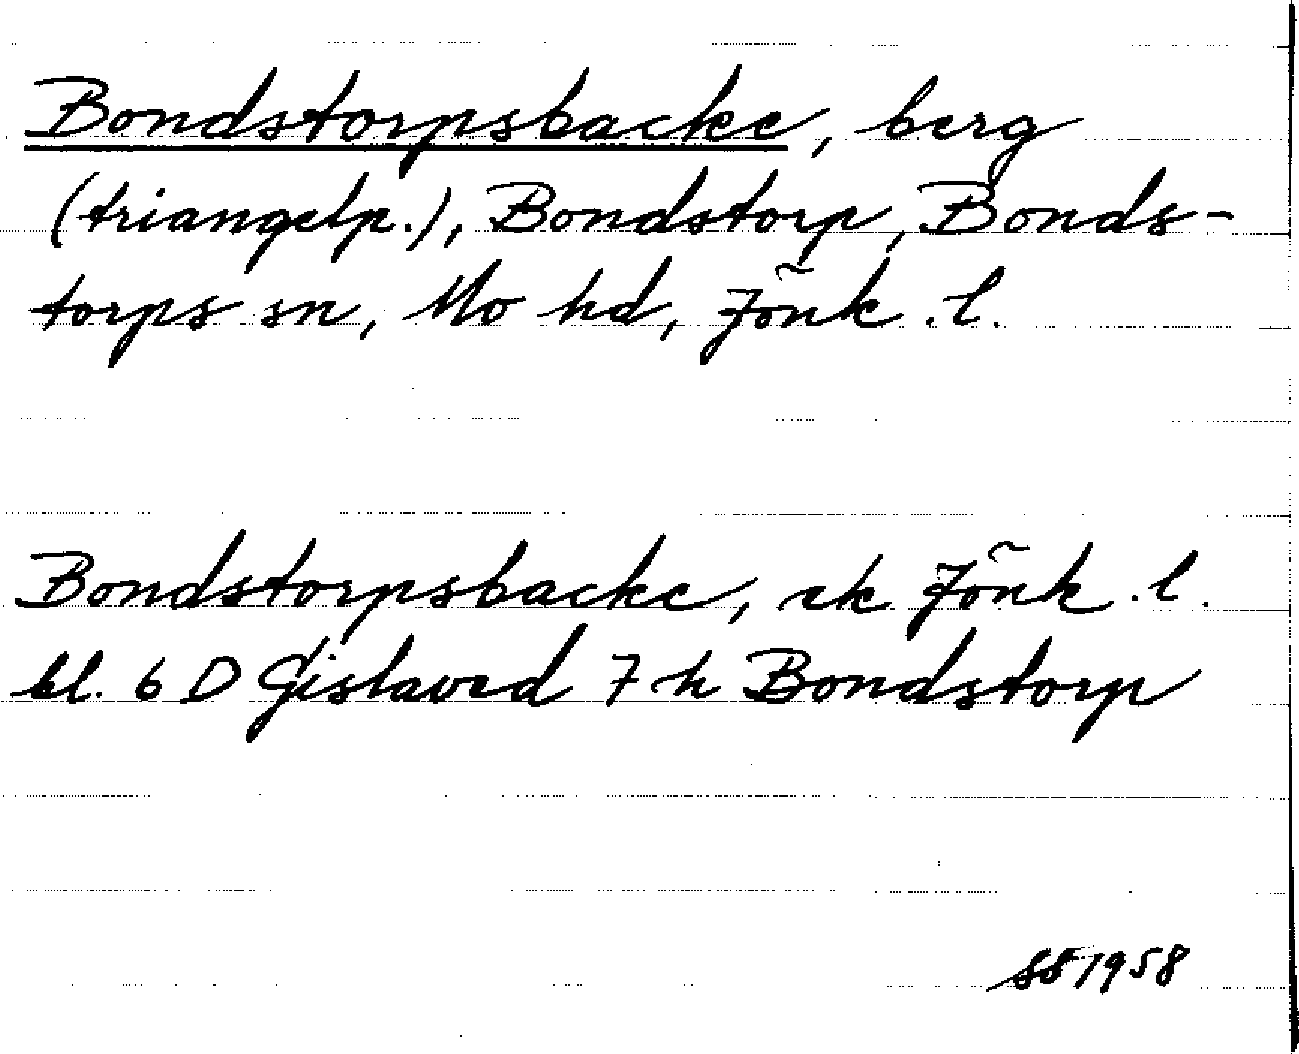 Bondstorpsbacke, berg
(triangelp.), Bondstorp, Bonds-
torps sn, Mo hd, Jönk. l.
Bondstorpsbacke, ek Jönk. l.
bl. 6 D Gislaved 7 h Bondstorp
1958